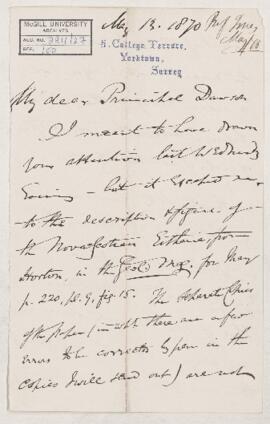 McGILL UNIVERSITY
ARCHIVES
ACC. NO. 2211/27
REF. 160
May 13. 1870
Prof Jones
May 13
5, College Terrace,
Yorktown,
Surrey
My dear Principal Dawson
I meant to have drawn
your attention last Wednesday
Evening – but it escaped me –
to the description & figure of
the Nova Scotian Estheria from
Horton, in the Geol. Mag. for May
p. 220, pl. 9, fig. 15. The Separate Copies
of the paper (in wh there are a few
errors to be corrected by pen in the
copies I will send out) are not